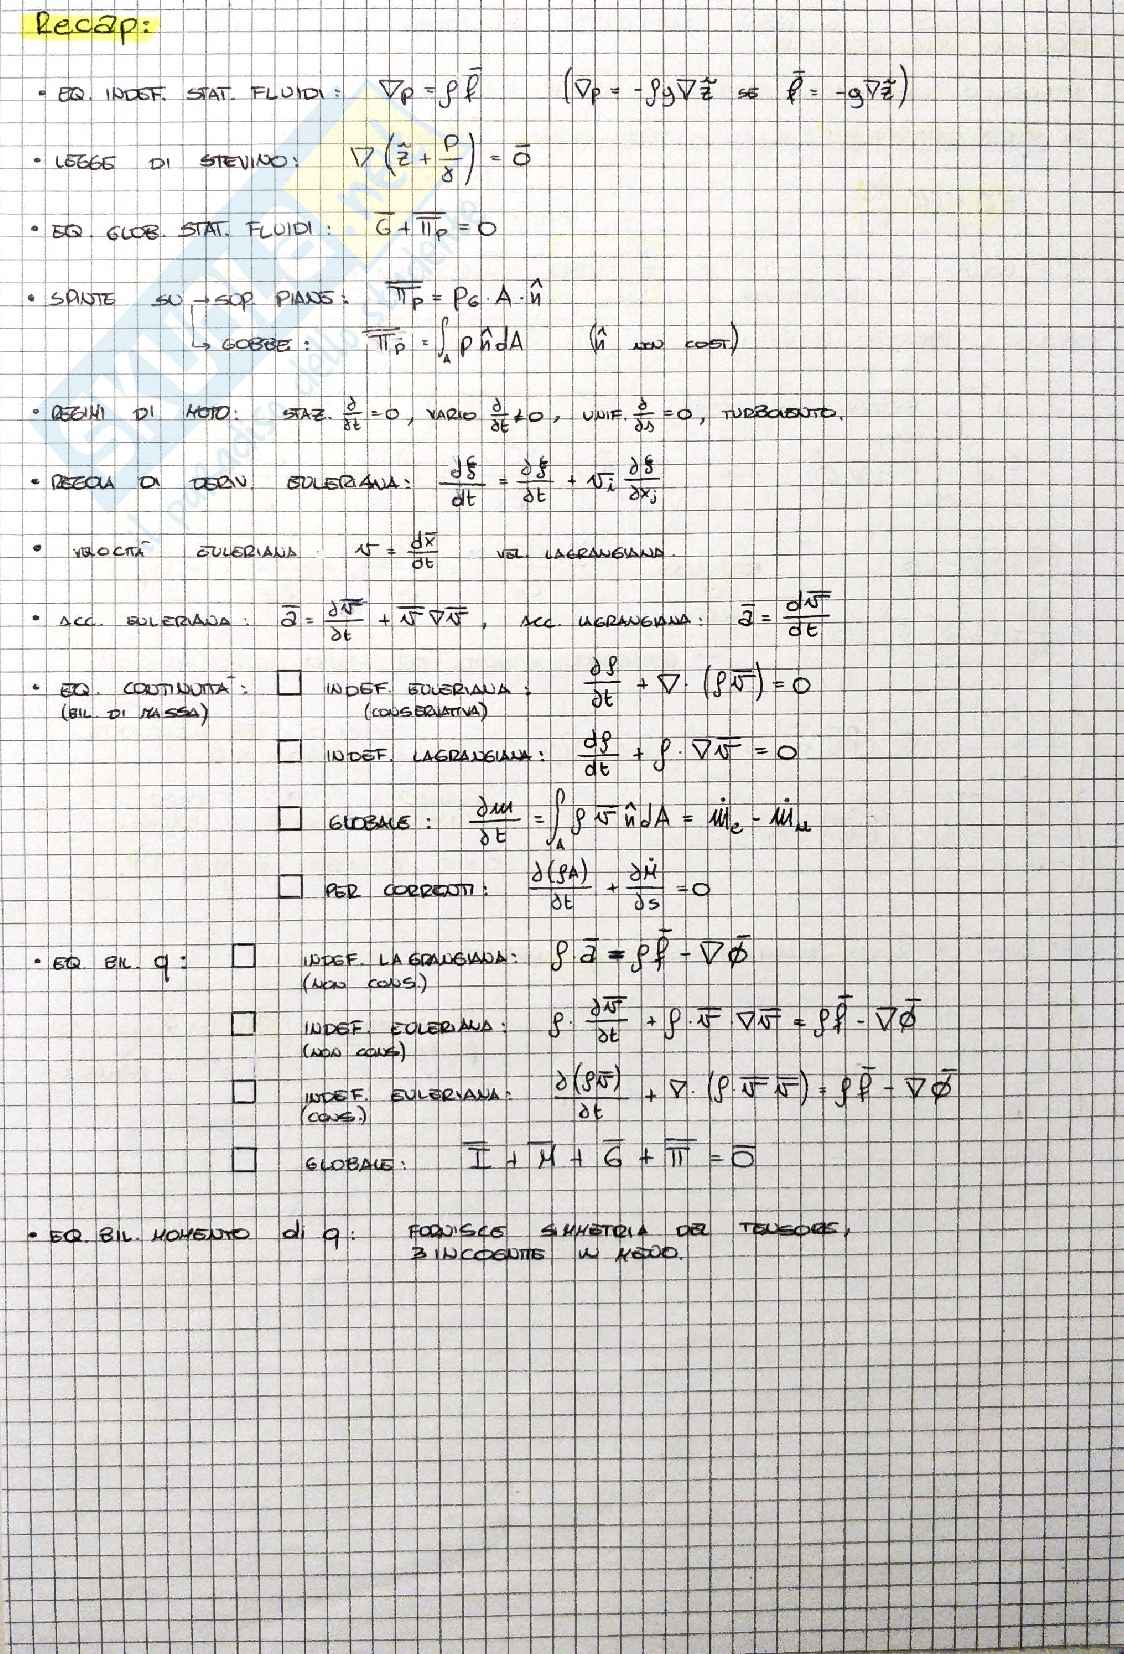 Recap:
• EQ. INDEF. STAT. FLUIDI: ∇p = ρf̄ (∇p = -ρg∇z̃ SE f̄ = -g∇z̃)
• LEGGE DI STEVINO: ∇(z̃ + p/γ) = 0̄
• EQ. GLOB. STAT. FLUIDI: Ḡ + Π̄p = 0
• SPINTE SU → SUP. PIANE: Π̄p = pG · A · n̂
↳ GOBBE: Π̄p = ∫A p n̂ dA (n̂ NON COST.)
• REGIMI DI MOTO: STAZ. ∂/∂t = 0, VARIO ∂/∂t ≠ 0, UNIF. ∂/∂s = 0, TURBOLENTO.
• REGOLA DI DERIV. EULERIANA: dξ/dt = ∂ξ/∂t + vi ∂ξ/∂xj
• VELOCITÀ EULERIANA v = dx̄/dt VEL. LAGRANGIANA.
• ACC. EULERIANA: ā = ∂v̄/∂t + v̄∇v̄, ACC. LAGRANGIANA: ā = dv̄/dt
• EQ. CONTINUITÀ: □ INDEF. EULERIANA: ∂ρ/∂t + ∇·(ρv̄) = 0
(BIL. DI MASSA) (CONSERVATIVA)
□ INDEF. LAGRANGIANA: dρ/dt + ρ·∇v̄ = 0
□ GLOBALE: ∂m/∂t = ∫A ρ v̄ n̂ dA = ṁe - ṁu
□ PER CORRENTI: ∂(ρA)/∂t + ∂Ṁ/∂s = 0
• EQ. BIL. q: □ INDEF. LAGRANGIANA: ρ ā = ρf̄ - ∇φ̄
(NON CONS.)
□ INDEF. EULERIANA: ρ· ∂v̄/∂t + ρ·v̄·∇v̄ = ρf̄ - ∇φ̄
(NON CONS)
□ INDEF. EULERIANA: ∂(ρv̄)/∂t + ∇·(ρ·v̄ v̄) = ρf̄ - ∇φ̄
(CONS.)
□ GLOBALE: Ī + M̄ + Ḡ + Π̄ = 0̄
• EQ. BIL. MOMENTO di q: FORNISCE SIMMETRIA DEL TENSORE,
3 INCOGNITE IN MENO.